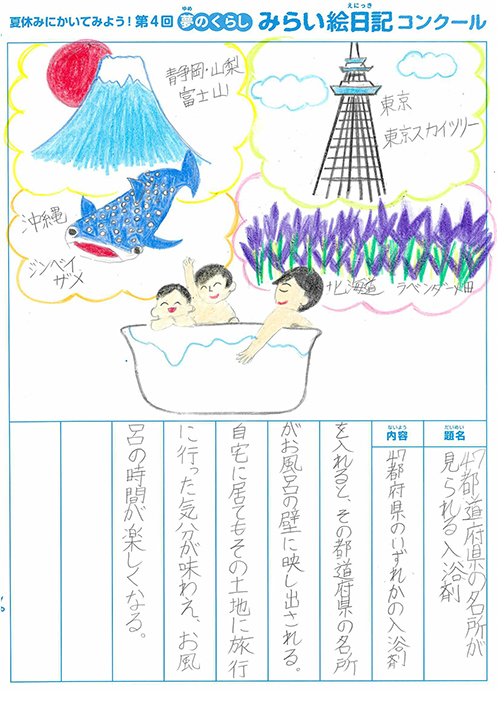 夏休みにかいてみよう!第4回 夢のくらし みらい絵日記 コンクール
ゆめ
えにっき
静岡・山梨
富士山
東京
東京スカイツリー
沖縄
ジンベイ
ザメ
北海道 ラベンダー畑
題名
だいめい
47都道府県の名所が
見られる入浴剤
内容
ないよう
47都府県のいずれかの入浴剤
を入れると、その都道府県の名所
がお風呂の壁に映し出される。
自宅に居てもその土地に旅行
に行った気分が味わえ、お風
呂の時間が楽しくなる。